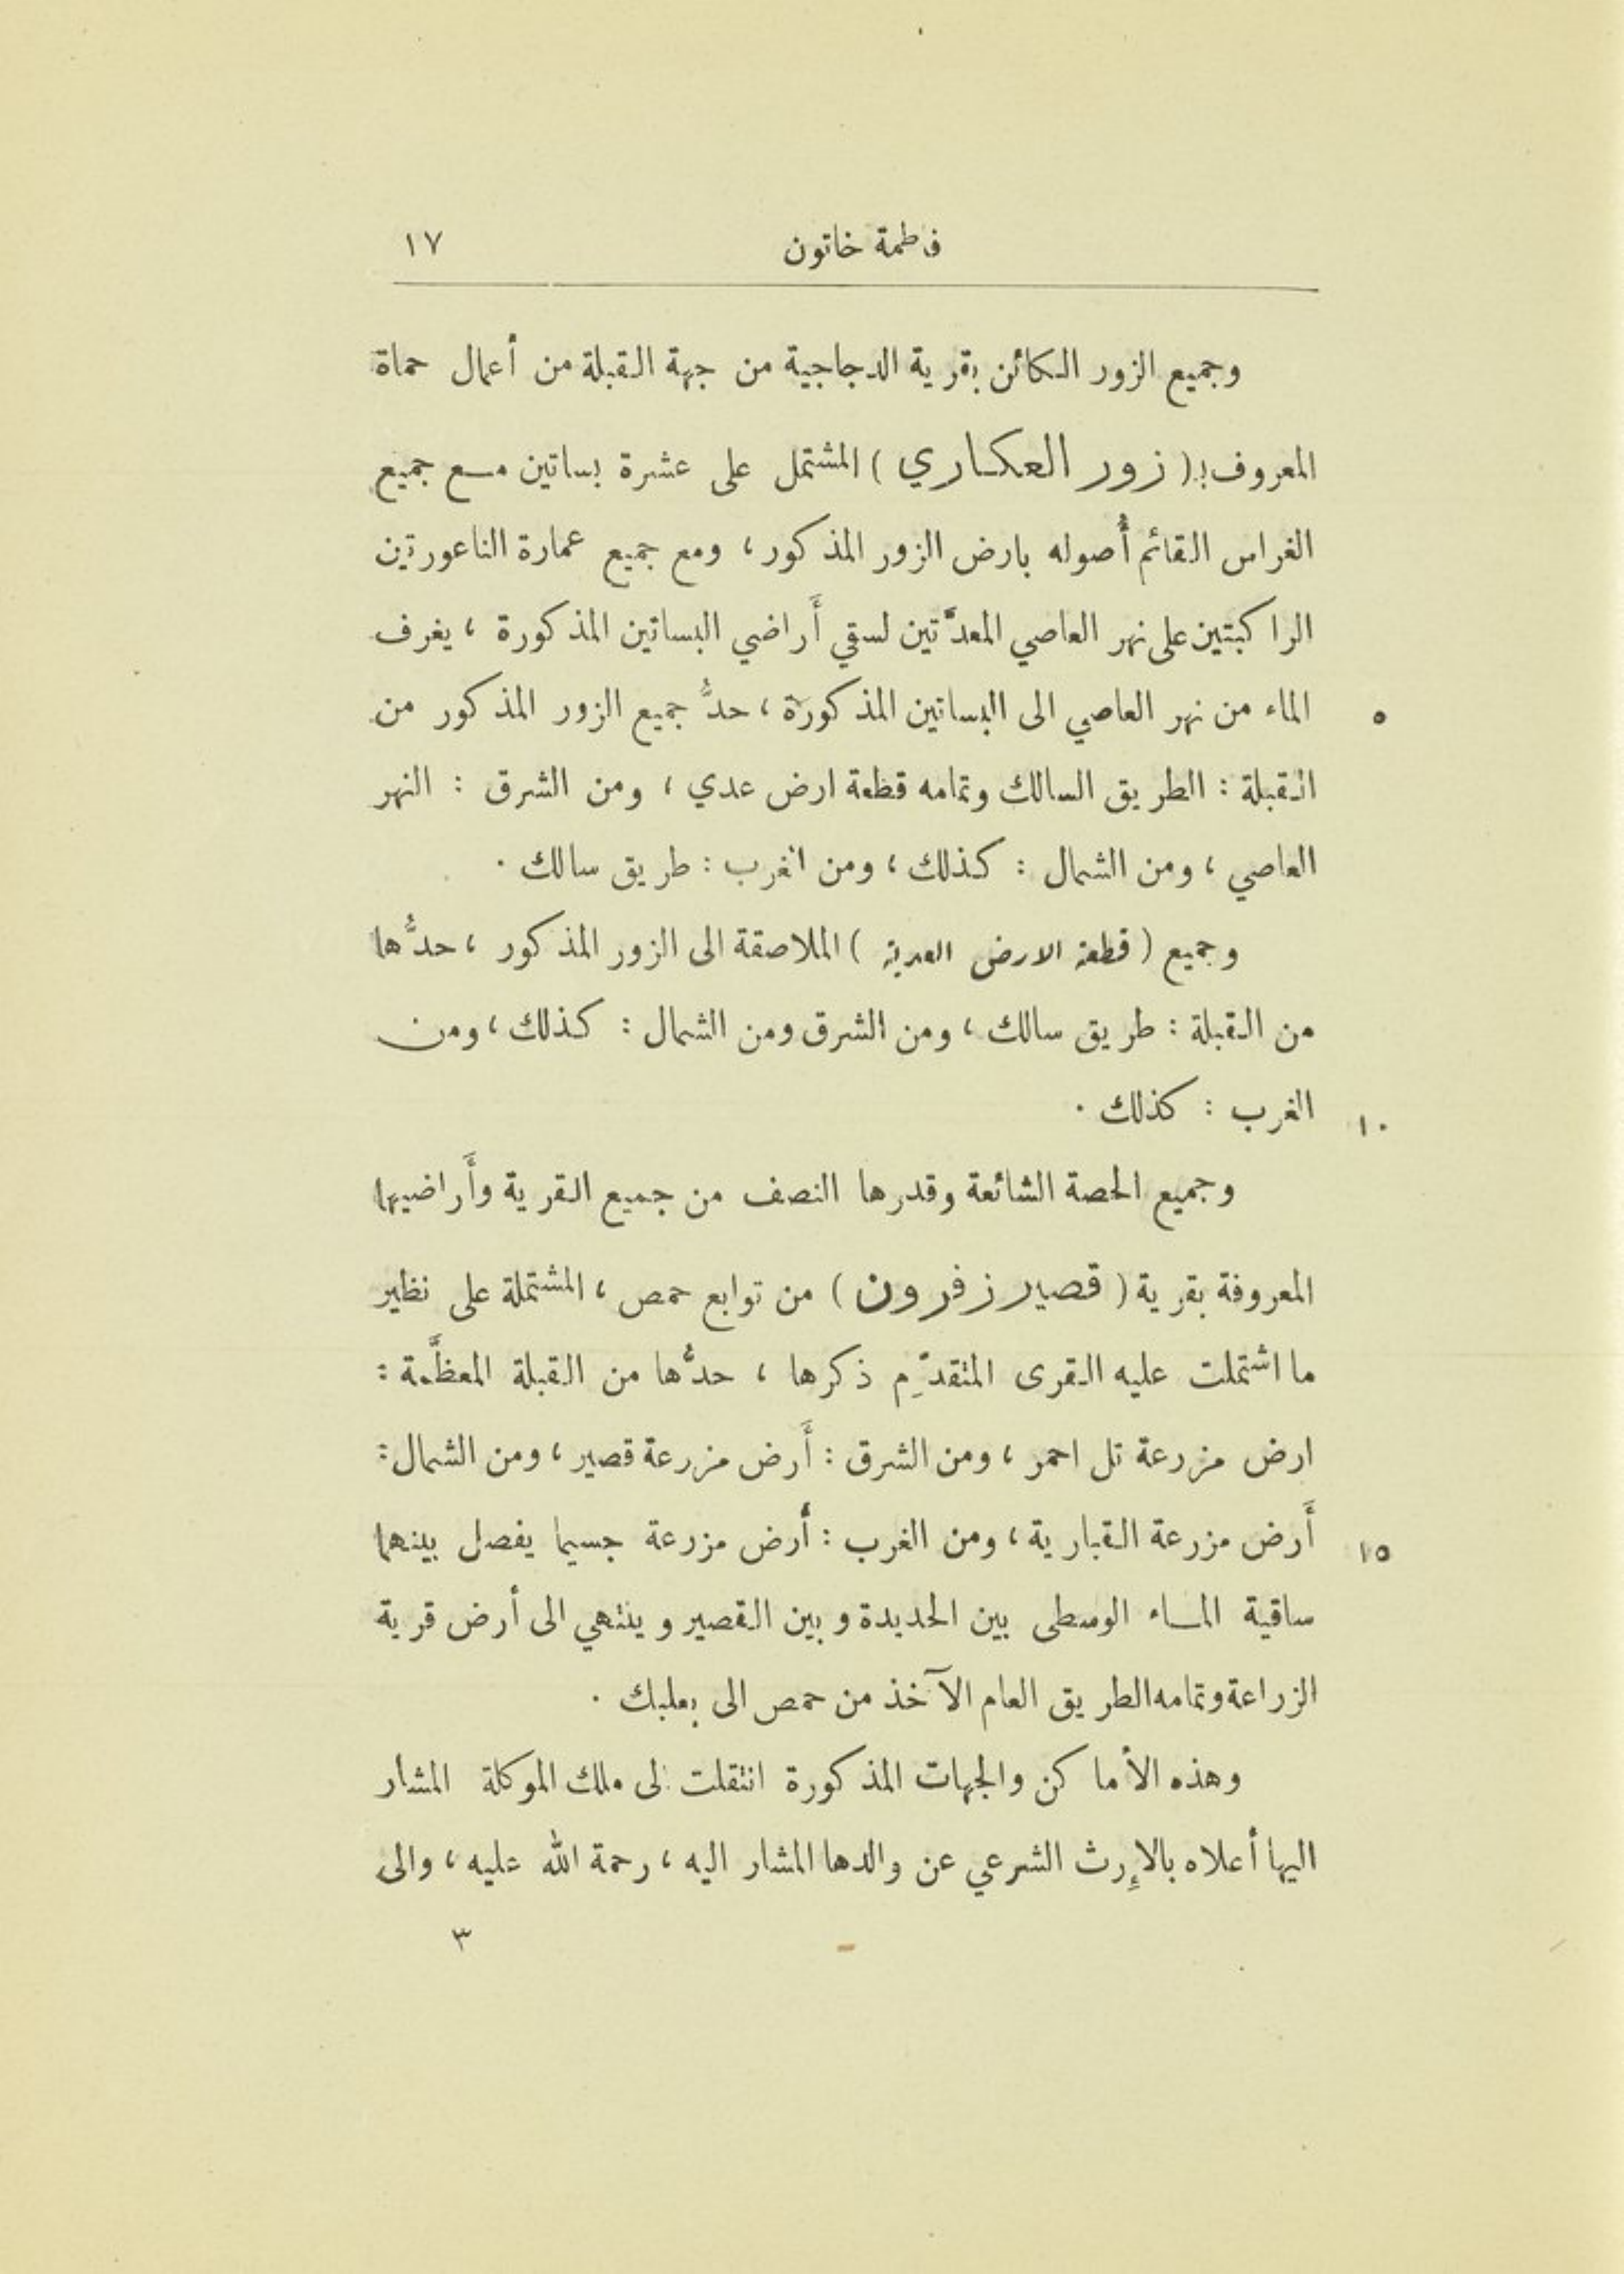 فاطمة خاتون ١٧
وجميع الزور الكائن بقرية الدجاجية من جهة القبلة من أعمال حماة
المعروف بـ ( زور العكاري ) المشتمل على عشرة بساتين مع جميع
الغراس القائم أُصوله بارض الزور المذكور ، ومع جميع عمارة الناعورتين
الراكبتين على نهر العاصي المعدَّتين لسقي أَراضي البساتين المذكورة ، يغرف
الماء من نهر العاصي الى البساتين المذكورة ، حدُّ جميع الزور المذكور من ٥
القبلة : الطريق السالك وتمامه قطعة ارض عدي ، ومن الشرق : النهر
العاصي ، ومن الشمال : كذلك ، ومن الغرب : طريق سالك .
وجميع ( قطعة الارض العدية ) الملاصقة الى الزور المذكور ، حدُّها
من القبلة : طريق سالك ، ومن الشرق ومن الشمال : كذلك ، ومن
الغرب : كذلك . ١٠
وجميع الحصة الشائعة وقدرها النصف من جميع القرية وأَراضيها
المعروفة بقرية ( قصير زفرون ) من توابع حمص ، المشتملة على نظير
ما اشتملت عليه القرى المتقدِّم ذكرها ، حدُّها من القبلة المعظَّمة :
ارض مزرعة تل احمر ، ومن الشرق : أَرض مزرعة قصير ، ومن الشمال :
أَرض مزرعة القبارية ، ومن الغرب : أرض مزرعة جسيما يفصل بينهما ١٥
ساقية الماء الوسطى بين الحديدة وبين القصير وينتهي الى أرض قرية
الزراعة وتمامه الطريق العام الآخذ من حمص الى بعلبك .
وهذه الأماكن والجهات المذكورة انتقلت الى ملك الموكلة المشار
اليها أعلاه بالإرث الشرعي عن والدها المشار اليه ، رحمة الله عليه ، والى
٣